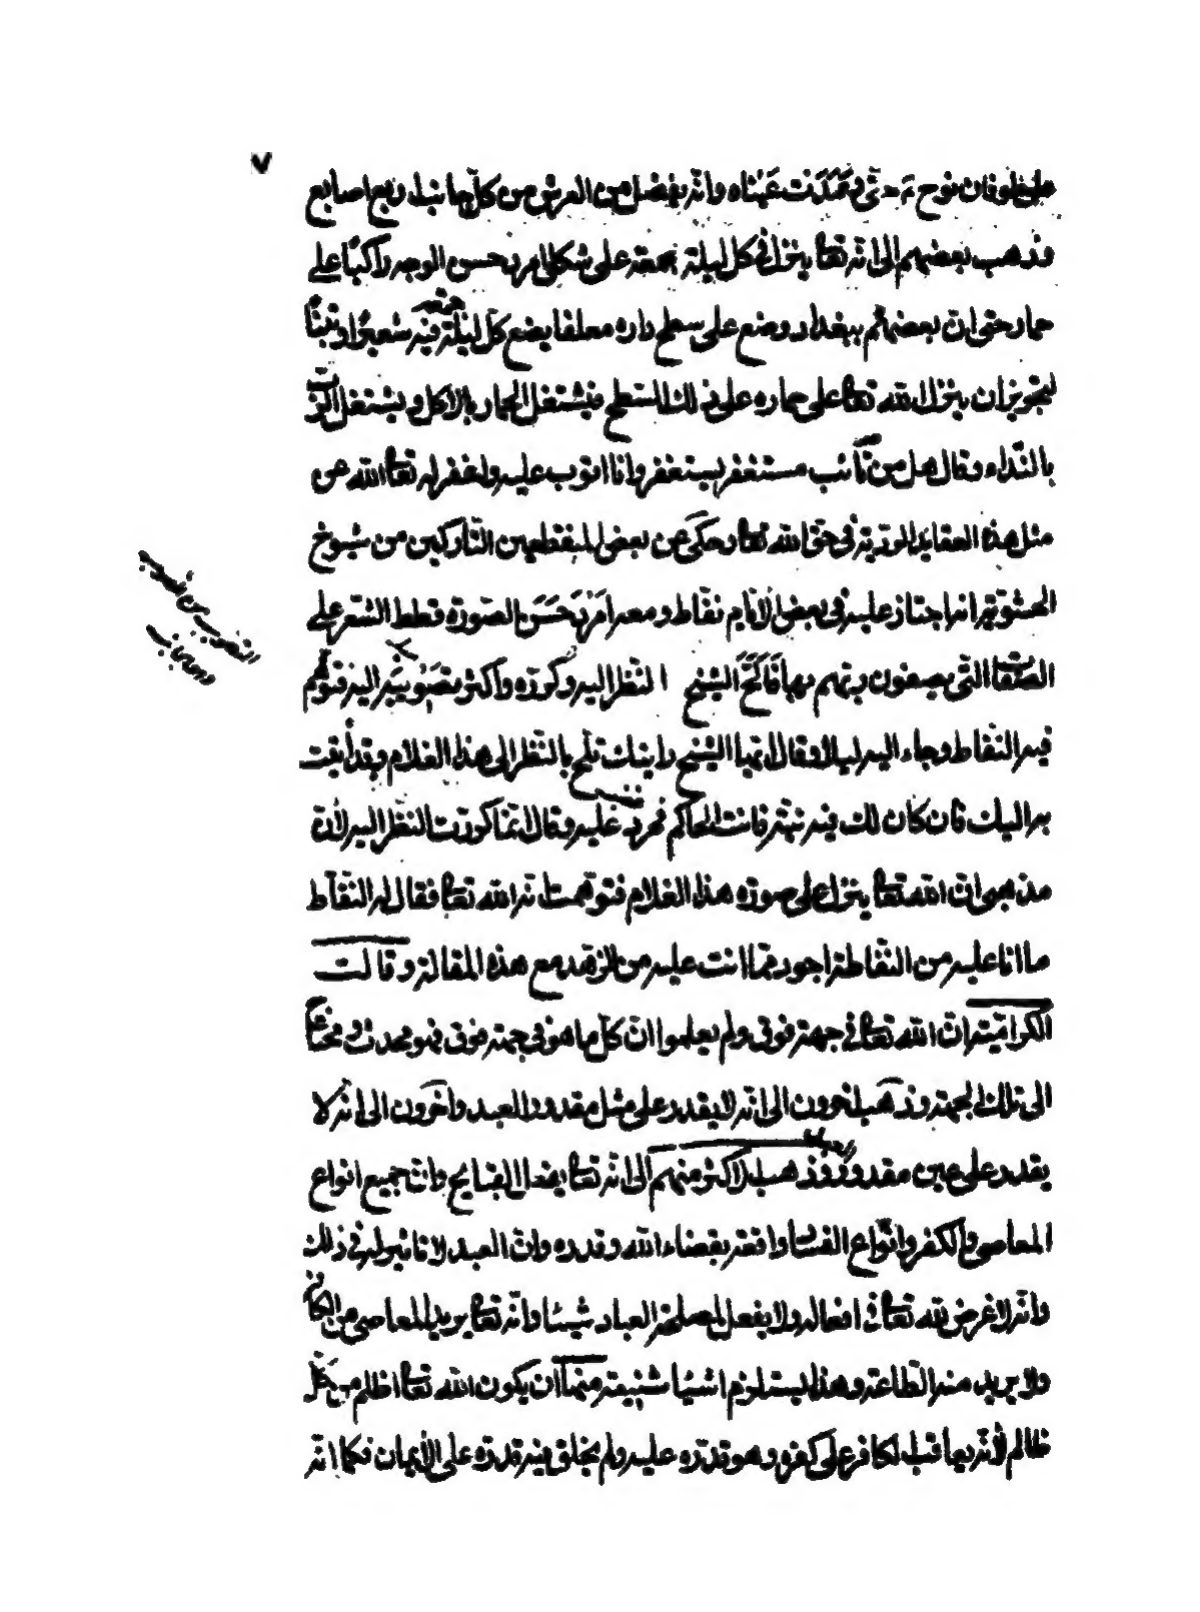 ٧
على طوفان نوح ع حتى رمدت عيناه وانه يفضل من العرش من كل جانب اربع اصابع
وذهب بعضهم الى انه تعا ينزل فى كل ليلة جمعة على شكل امرد حسن الوجه راكبا على
حمار حتى ان بعضهم ببغداد وضع على سطح داره معلفا يضع كل ليلة جمعة فيه شعيرا وتبنا
لتجويز ان ينزل الله تعا على حماره على ذلك السطح فيشتغل الحمار بالاكل ويشتغل الرب
بالنداء وقال هل من تائب مستغفر يستغفر وانا اتوب عليه واغفر له تعا الله عن
مثل هذه العقايد الردية فى حق الله تعا وحكى عن بعض المنقطعين التاركين من شيوخ
الحشوية انه اجتاز عليه فى بعض الايام نفاط ومعه امرد حسن الصورة قطط الشعر على
الصفات التى يصفون ربهم بها فالح الشيخ النظر اليه وكرره واكثر تصويبه اليه فتوهم
فيه النفاط وجاء اليه ليلا وقال ايها الشيخ رايتك تلح بالنظر الى هذا الغلام وقد أتيت
به اليك فان كان لك فيه نية فانت الحاكم فحرد عليه وقال انما كررت النظر اليه لان
مذهبى ان الله تعا ينزل على صورة هذا الغلام فتوهمت انه الله تعا فقال له النفاط
ما انا عليه من النفاطة اجود مما انت عليه من الزهد مع هذه المقالة وقالت
الكرامية ان الله تعا فى جهة فوق ولم يعلموا ان كل ما هو فى جهة فوق فهو محدث ومحتاج
الى تلك الجهة وذهب اخرون الى انه لا يقدر على مثل مقدور العبد واخرون الى انه لا
يقدر على عين مقدور وذهب الاكثر منهم الى انه تعا يفعل القبايح وان جميع انواع
المعاصى والكفر وانواع الفساد واقعة بقضاء الله وقدره وان العبد لا تاثير له فى ذلك
وانه لا غرض لله تعا فى افعاله ولا يفعل لمصلحة العباد شيئا وانه تعا يريد المعاصى من الكافر
ولا يريد منه الطاعة وهذا يستلزم اشيا شنيعة منها ان يكون الله تعا اظلم من كل
ظالم لانه يعاقب الكافر على كفره وهو قدره عليه ولم يخلق فيه قدرة على الايمان فكما انه